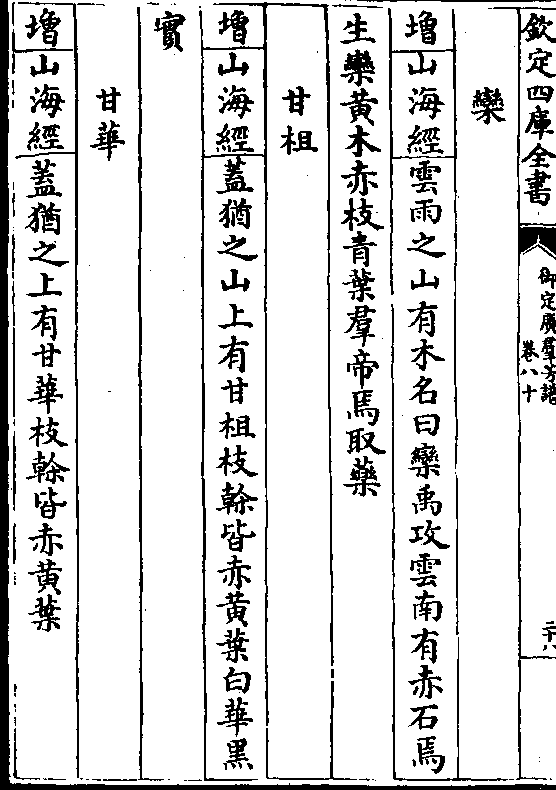 欽定四庫全書
御定廣羣芳譜
卷八十
二十八
欒
増山海經雲雨之山有木名曰欒禹攻雲南有赤石焉
生欒黃木赤枝青葉羣帝焉取藥
甘柤
増山海經蓋猶之山上有甘柤枝榦皆赤黃葉白華黒
實
甘華
増山海經蓋猶之上有甘華枝榦皆赤黃葉